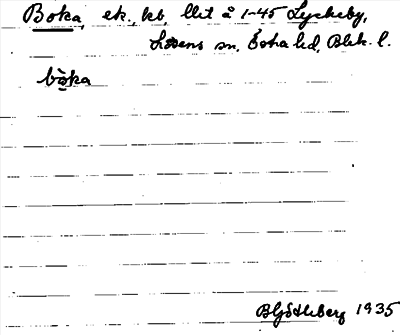 Boka, ek., kb, lht å 1-45 Lyckeby,
Lösens sn, Östra hd, Blek. l.
bo̤ka
B Götlaberg 1935